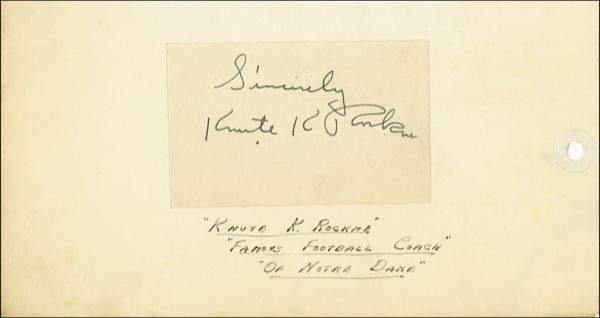 Sincerely
Knute K Rockne
"Knute K. Rockne"
"Famous Football Coach"
"Of Notre Dame"